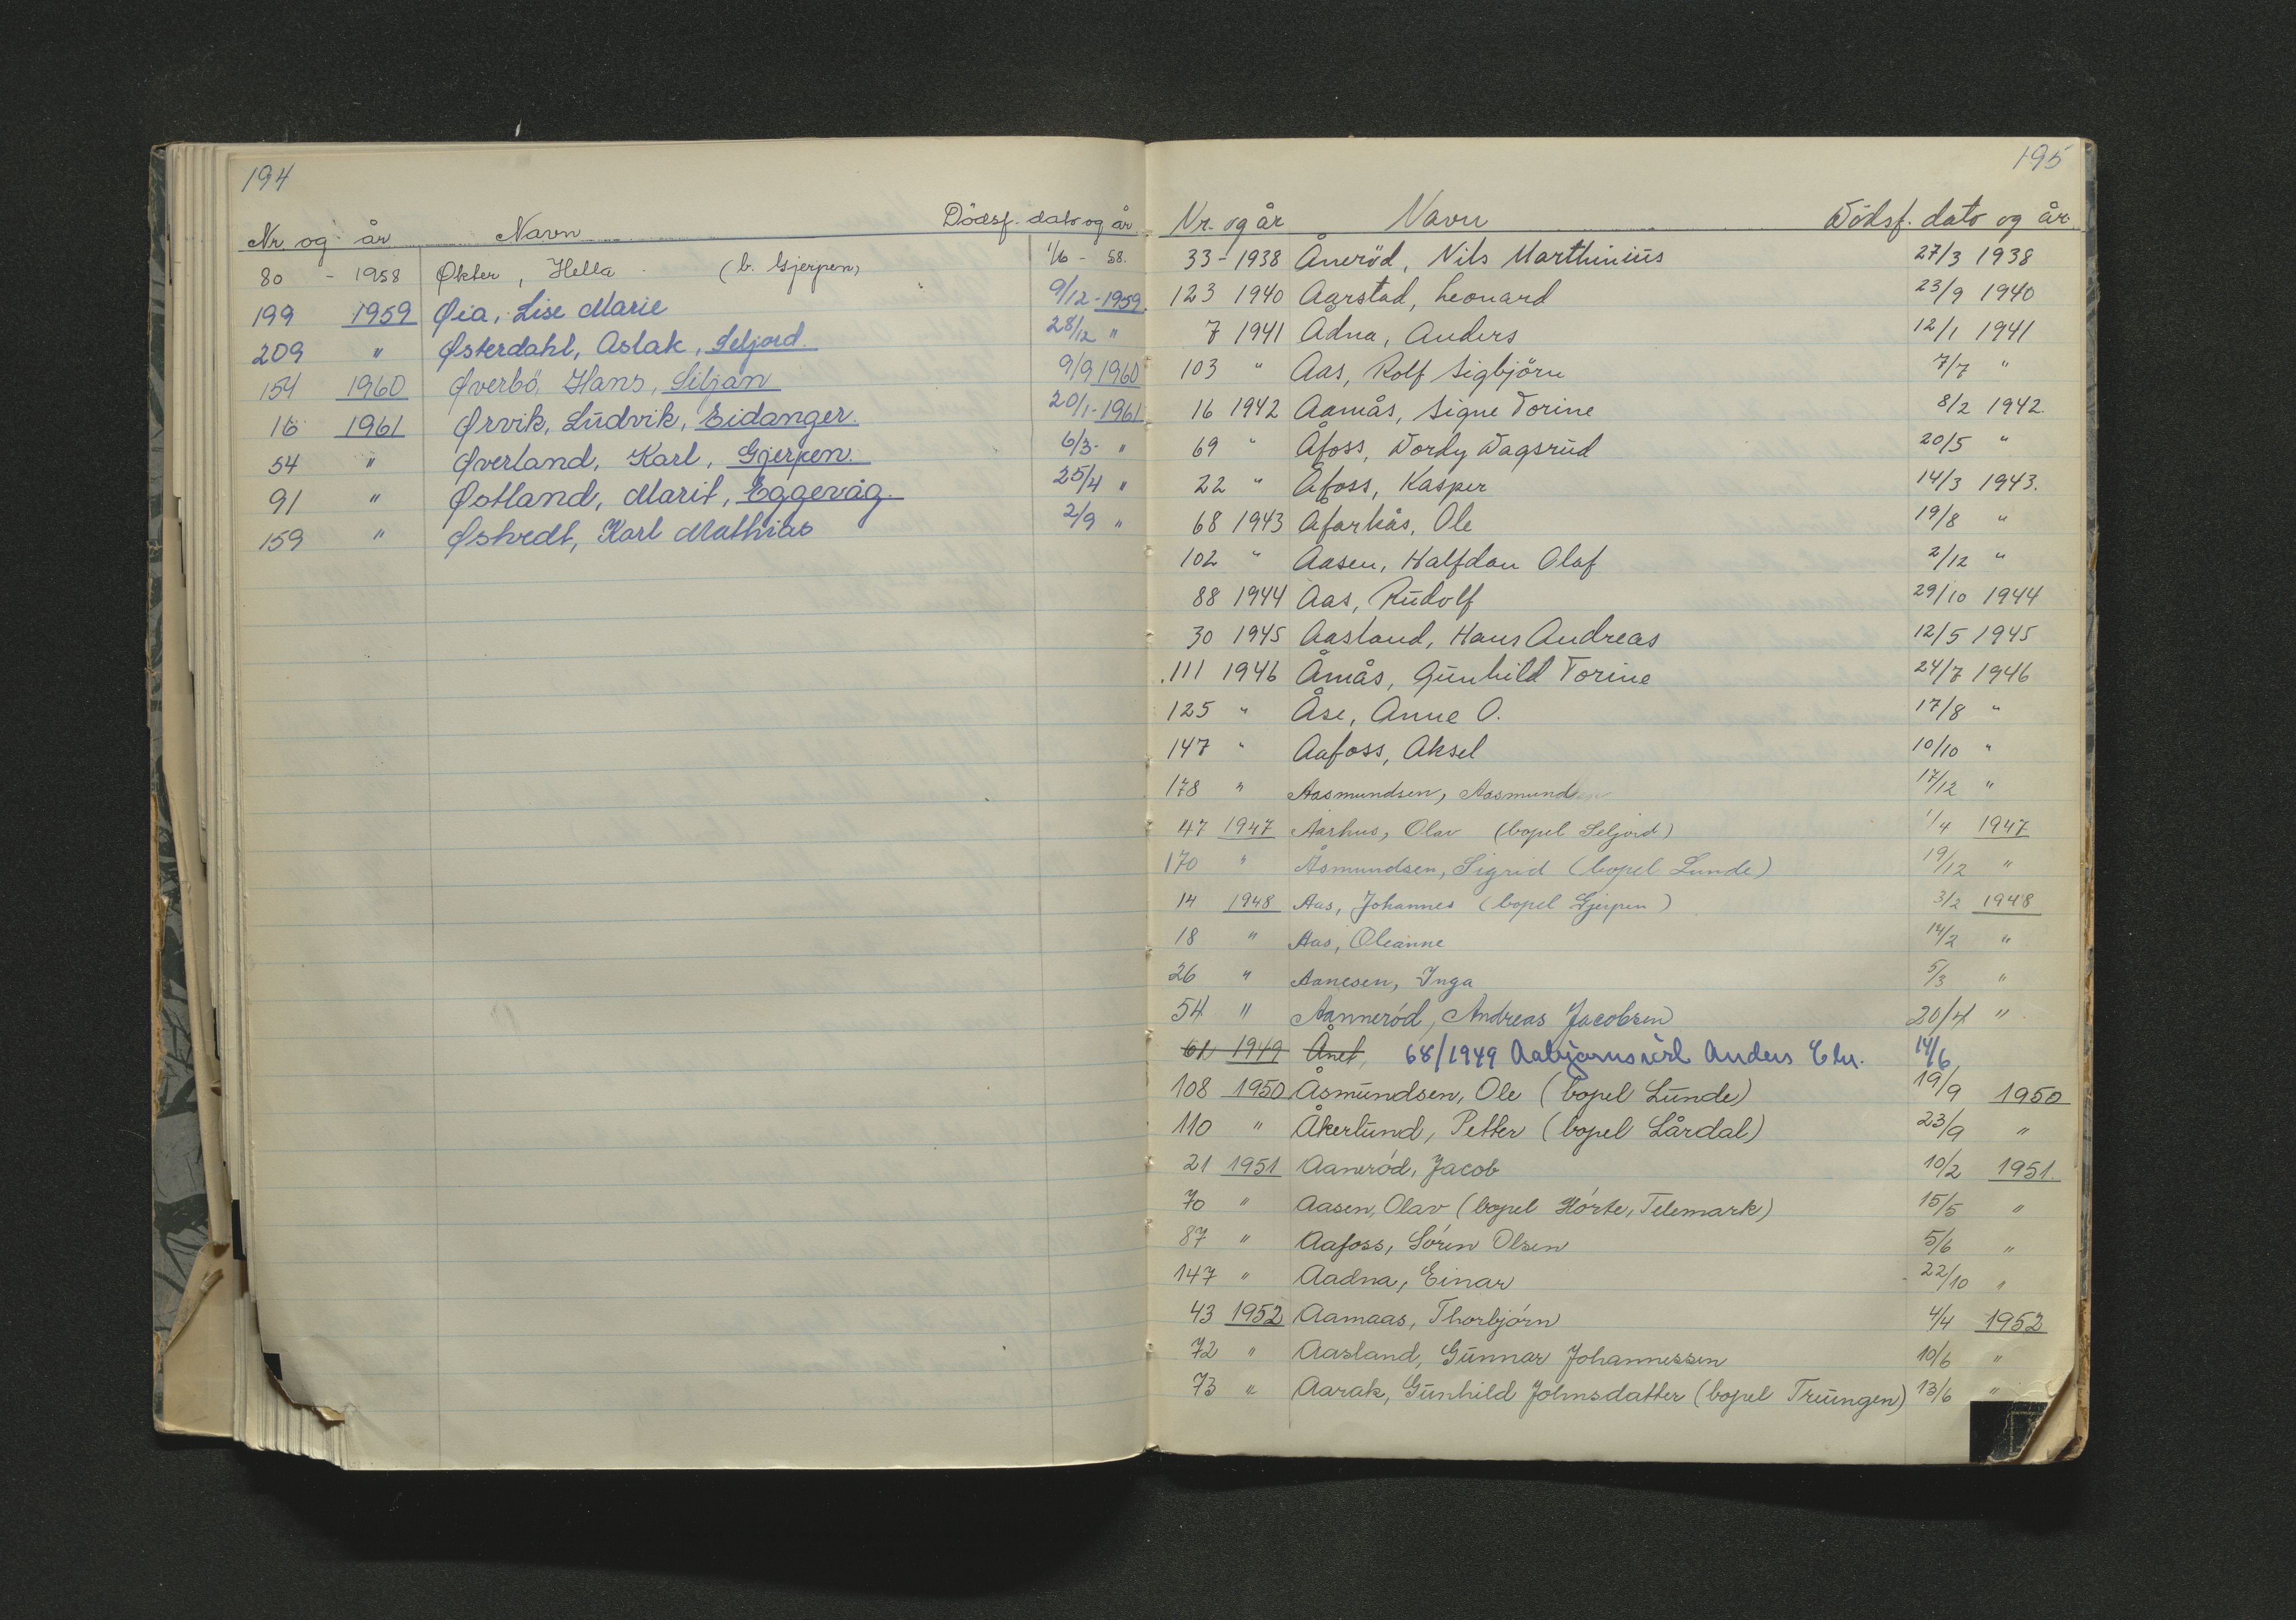 194
Nr og år Navn Dödsf. dato og år
80 - 1958 Økter, Hella (b. Gjerpen) 1/6 - 58.
199 1959 Øia, Lise Marie 9/12 - 1959.
209 " Østerdahl, Aslak, Seljord. 28/12 "
154 1960 Øverbö, Hans, Siljan 9/9 1960
16 1961 Ørvik, Ludvik, Eidanger. 20/1 - 1961
54 " Øverland, Karl, Gjerpen. 6/3 - "
91 " Østland, Marit, Eggevåg. 25/4 "
159 " Østvedt, Karl Mathias 2/9 "
195
Nr. og år Navn Dödsf. dato og år.
33 - 1938 Åneröd, Nils Marthinius 27/3 1938
123 1940 Aarstad, Leonard 23/9 1940
7 1941 Ådna, Anders 12/1 1941
103 " Aas, Rolf Sigbjörn 7/7 "
16 1942 Aamås, Signe Torine 8/2 1942.
69 " Åfoss, Dordy Dagsrud 20/5 "
22 " Åfoss, Kasper 14/3 1943.
68 1943 Åfarkås, Ole 19/8 "
102 " Aasen, Halfdan Olaf 2/12 "
88 1944 Aas, Rudolf 29/10 1944
30 1945 Aasland, Hans Andreas 12/5 1945
111 1946 Åmås, Gunhild Torine 24/7 1946
125 " Åse, Anne O. 17/8 "
147 " Aafoss, Aksel 10/10 "
178 " Aasmundsen, Aasmund 17/12 "
47 1947 Aarhus, Olav (bopel Seljord) 1/4 1947
170 " Åsmundsen, Sigrid (bopel Lunde) 19/12 "
14 1948 Aas, Johannes (bopel Gjerpen) 3/2 1948
18 " Aas, Oleanne 14/2 "
26 " Aanesen, Inga 5/3 "
54 " Aanneród, Andreas Jacobsen 20/4 "
61 1949 Ånet, 68/1949 Anders Chr. 14/6
108 1950 Åsmundsen, Ole (bopel Lunde) 19/9 1950
110 " Åkerlund, Petter (bopel Lårdal) 23/9 "
21 1951 Aaneród, Jacob 10/2 1951.
70 " Aasen, Olav (bopel Hórte, Telemark) 15/5 "
87 " Aafoss, Sóren Olsen 5/6 "
147 " Aadna, Einar 22/10 "
43 1952 Aamaas, Thorbjórn 4/4 1952
72 " Aasland, Gunnar Johannessen 10/6 "
73 " Aarak, Gunhild Johnsdatter (bopel Treungen) 13/6 "